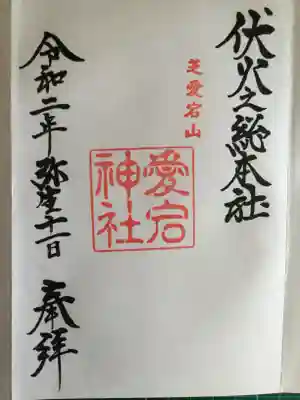 伏火之総本社
芝愛宕山
愛宕神社
令和二年弥生十一日
奉拝